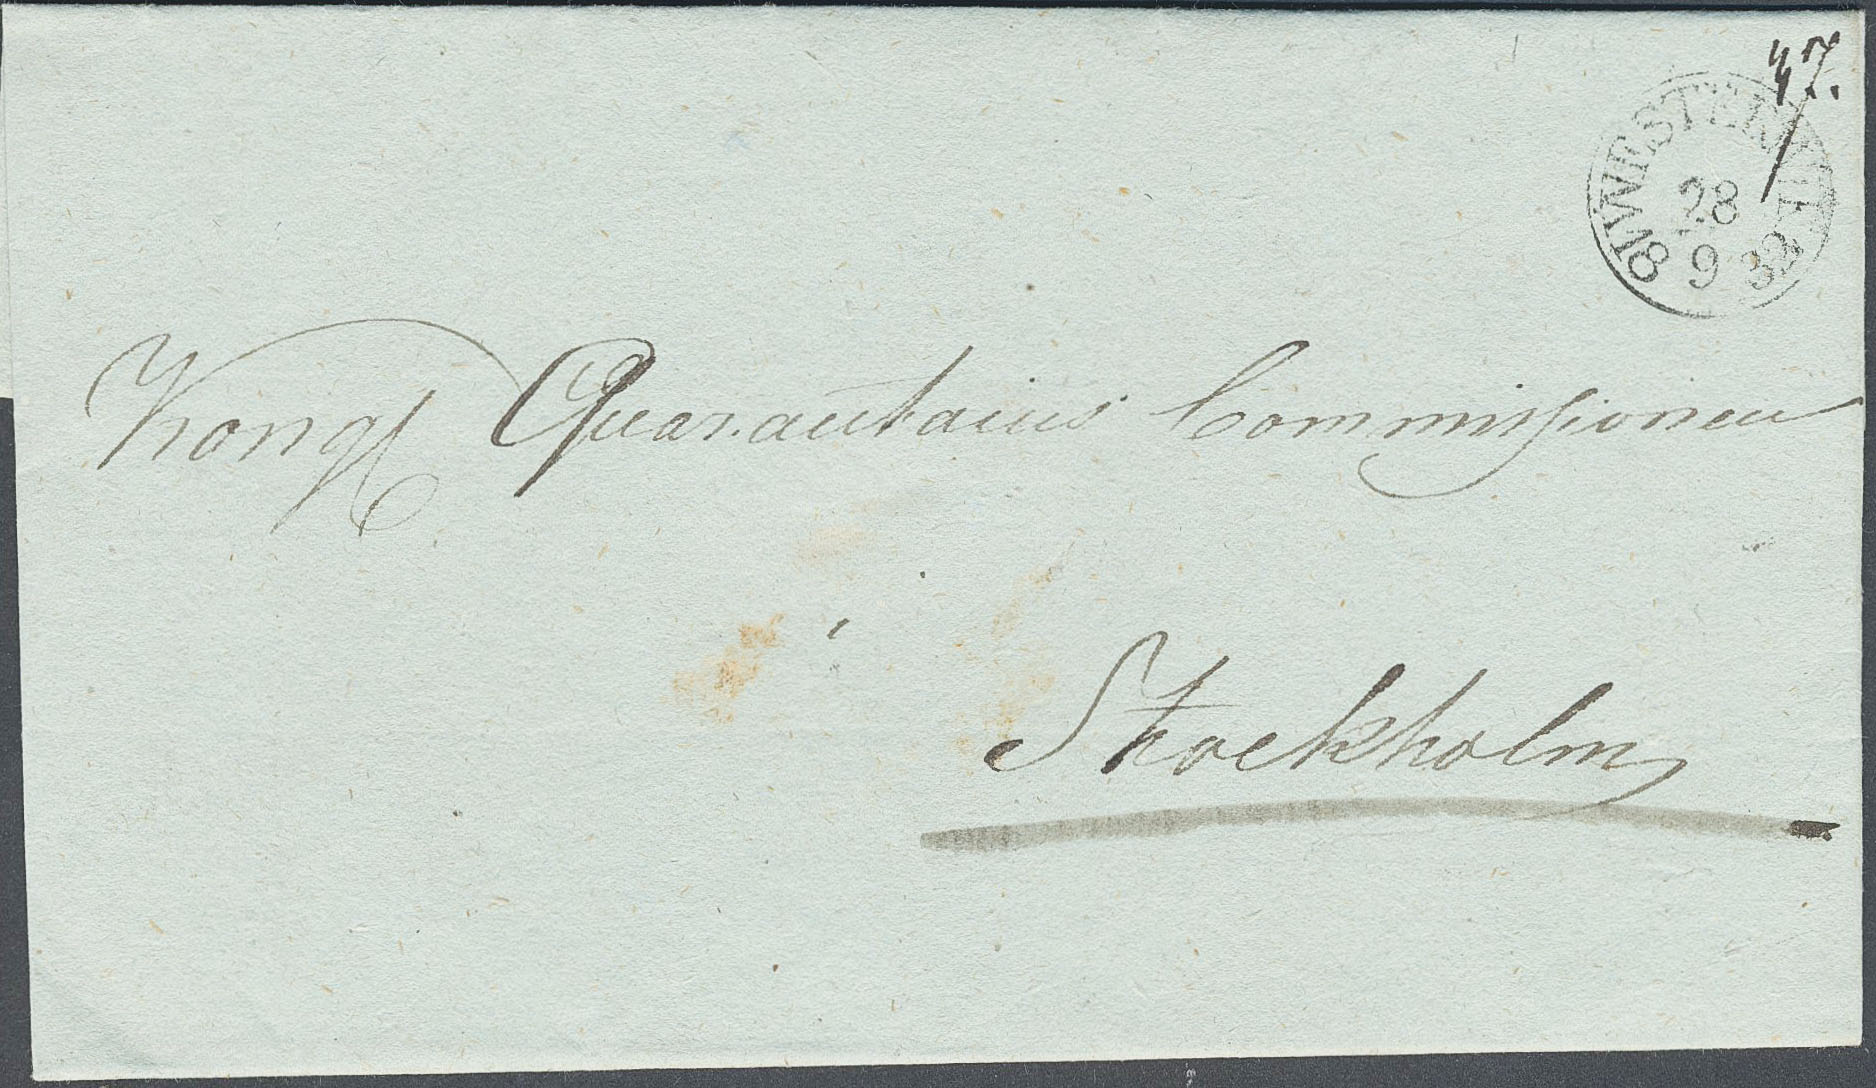 47.
WESTERWIK
28
18 9 32
Kongl Quarantains Commissionen
i
Stockholm